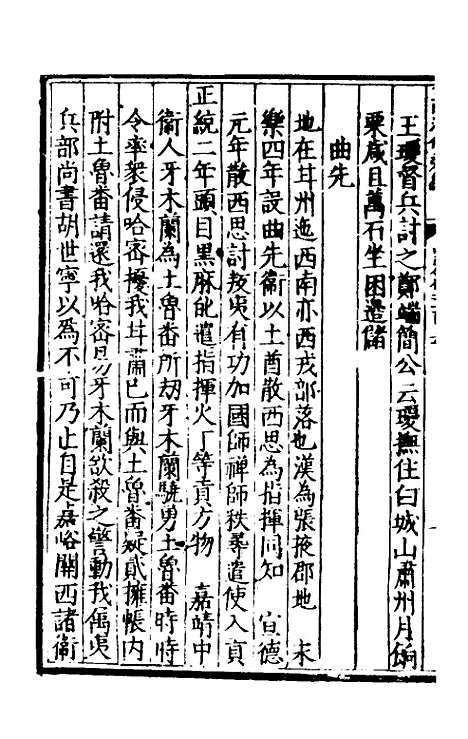 王瓊督兵討之鄭端簡公云瓊撫住白城山肅州月餉
粟歲且萬石坐困邊儲
曲先
地在甘州迤西南亦西戎部落也漢為張掖郡地 永
樂四年設曲先衛以土酋散西思為指揮同知 宣德
元年散西思討叛夷有功加國師禪師秩尋遣使入貢
正統二年頭目黑麻能遣指揮火丁等貢方物 嘉靖中
衛人牙木蘭為土魯番所刼牙木蘭驍勇土魯番時時
令率衆侵哈密擾我甘肅已而與土魯番疑貳擁帳内
附土魯番請還我哈密易牙木蘭欲殺之警動我僞夷
兵部尚書胡世寧以為不可乃止自是嘉峪關西諸衛